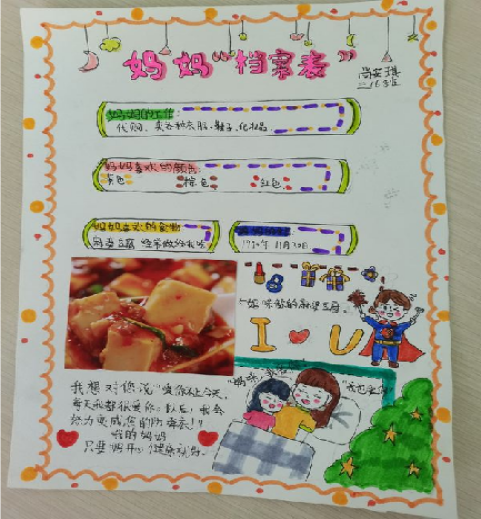 妈妈“档案表”
二、6班
妈妈的工作:
代购、卖各种衣服、鞋子、化妆品
妈妈喜欢的颜色:
黄色 棕色 红色
妈妈喜欢的食物
麻婆豆腐
妈妈的生日
11月30日
I U
我想对您说“爱你不止今天,
每天我都很爱你。以后,我会
努力变成您的防弹衣!”
我的妈妈
只要你开心、健康就好。
“妈妈,